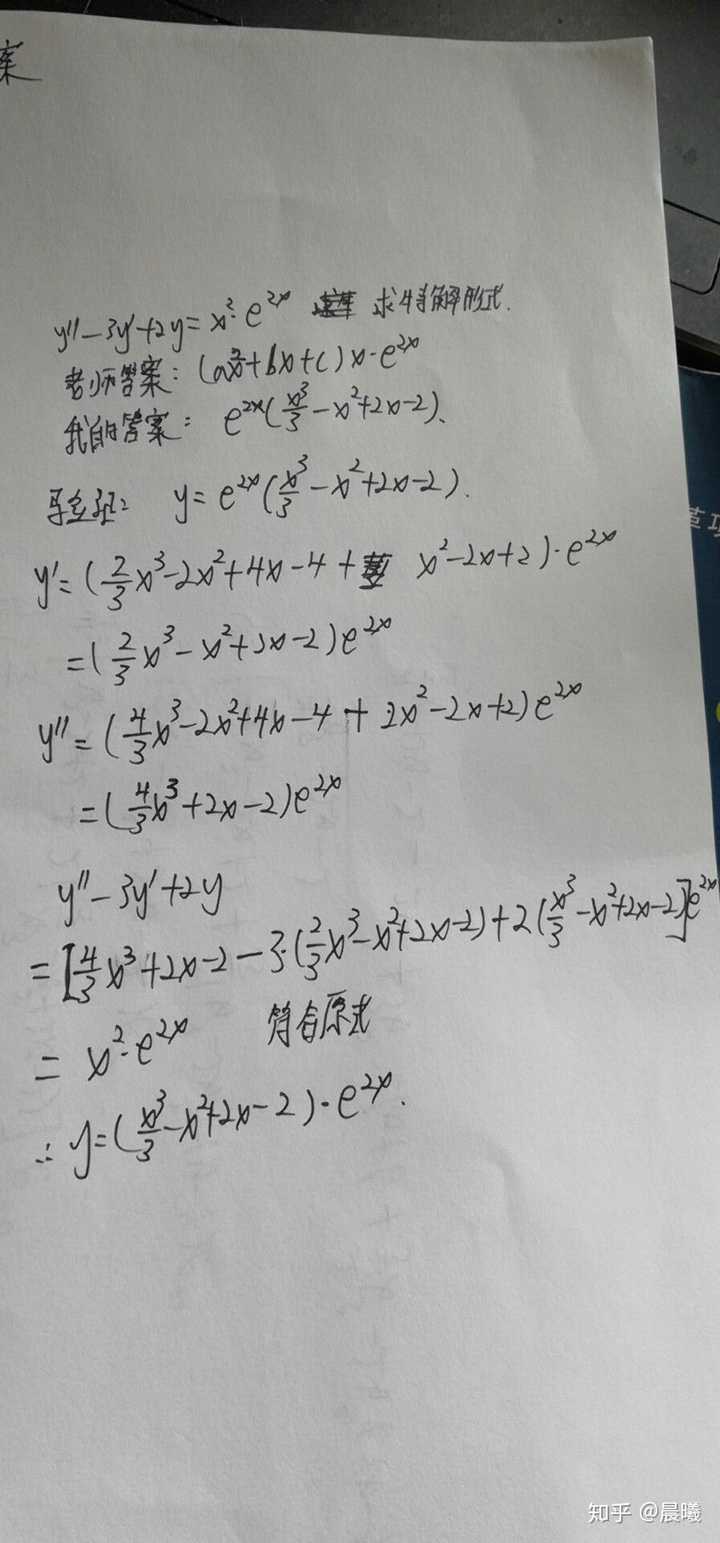 案
y″-3y′+2y=x²·e²ˣ 求特解形式.
老师答案: (ax²+bx+c)x·e²ˣ
我的答案: e²ˣ(x³/3-x²+2x-2).
验证: y=e²ˣ(x³/3-x²+2x-2).
y′=(2/3x³-2x²+4x-4+ x²-2x+2)·e²ˣ
=(2/3x³-x²+2x-2)e²ˣ
y″=(4/3x³-2x²+4x-4+2x²-2x+2)e²ˣ
=(4/3x³+2x-2)e²ˣ
y″-3y′+2y
=[4/3x³+2x-2-3·(2/3x³-x²+2x-2)+2(x³/3-x²+2x-2)]e²ˣ
=x²·e²ˣ 符合原式
∴y=(x³/3-x²+2x-2)·e²ˣ.
知乎 @晨曦